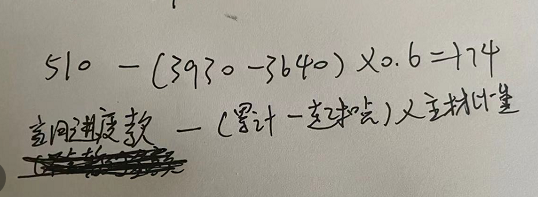 510 - (3930 - 3640) × 0.6 = 174
当月进度款 - (累计 - 起扣点) × 主材比重